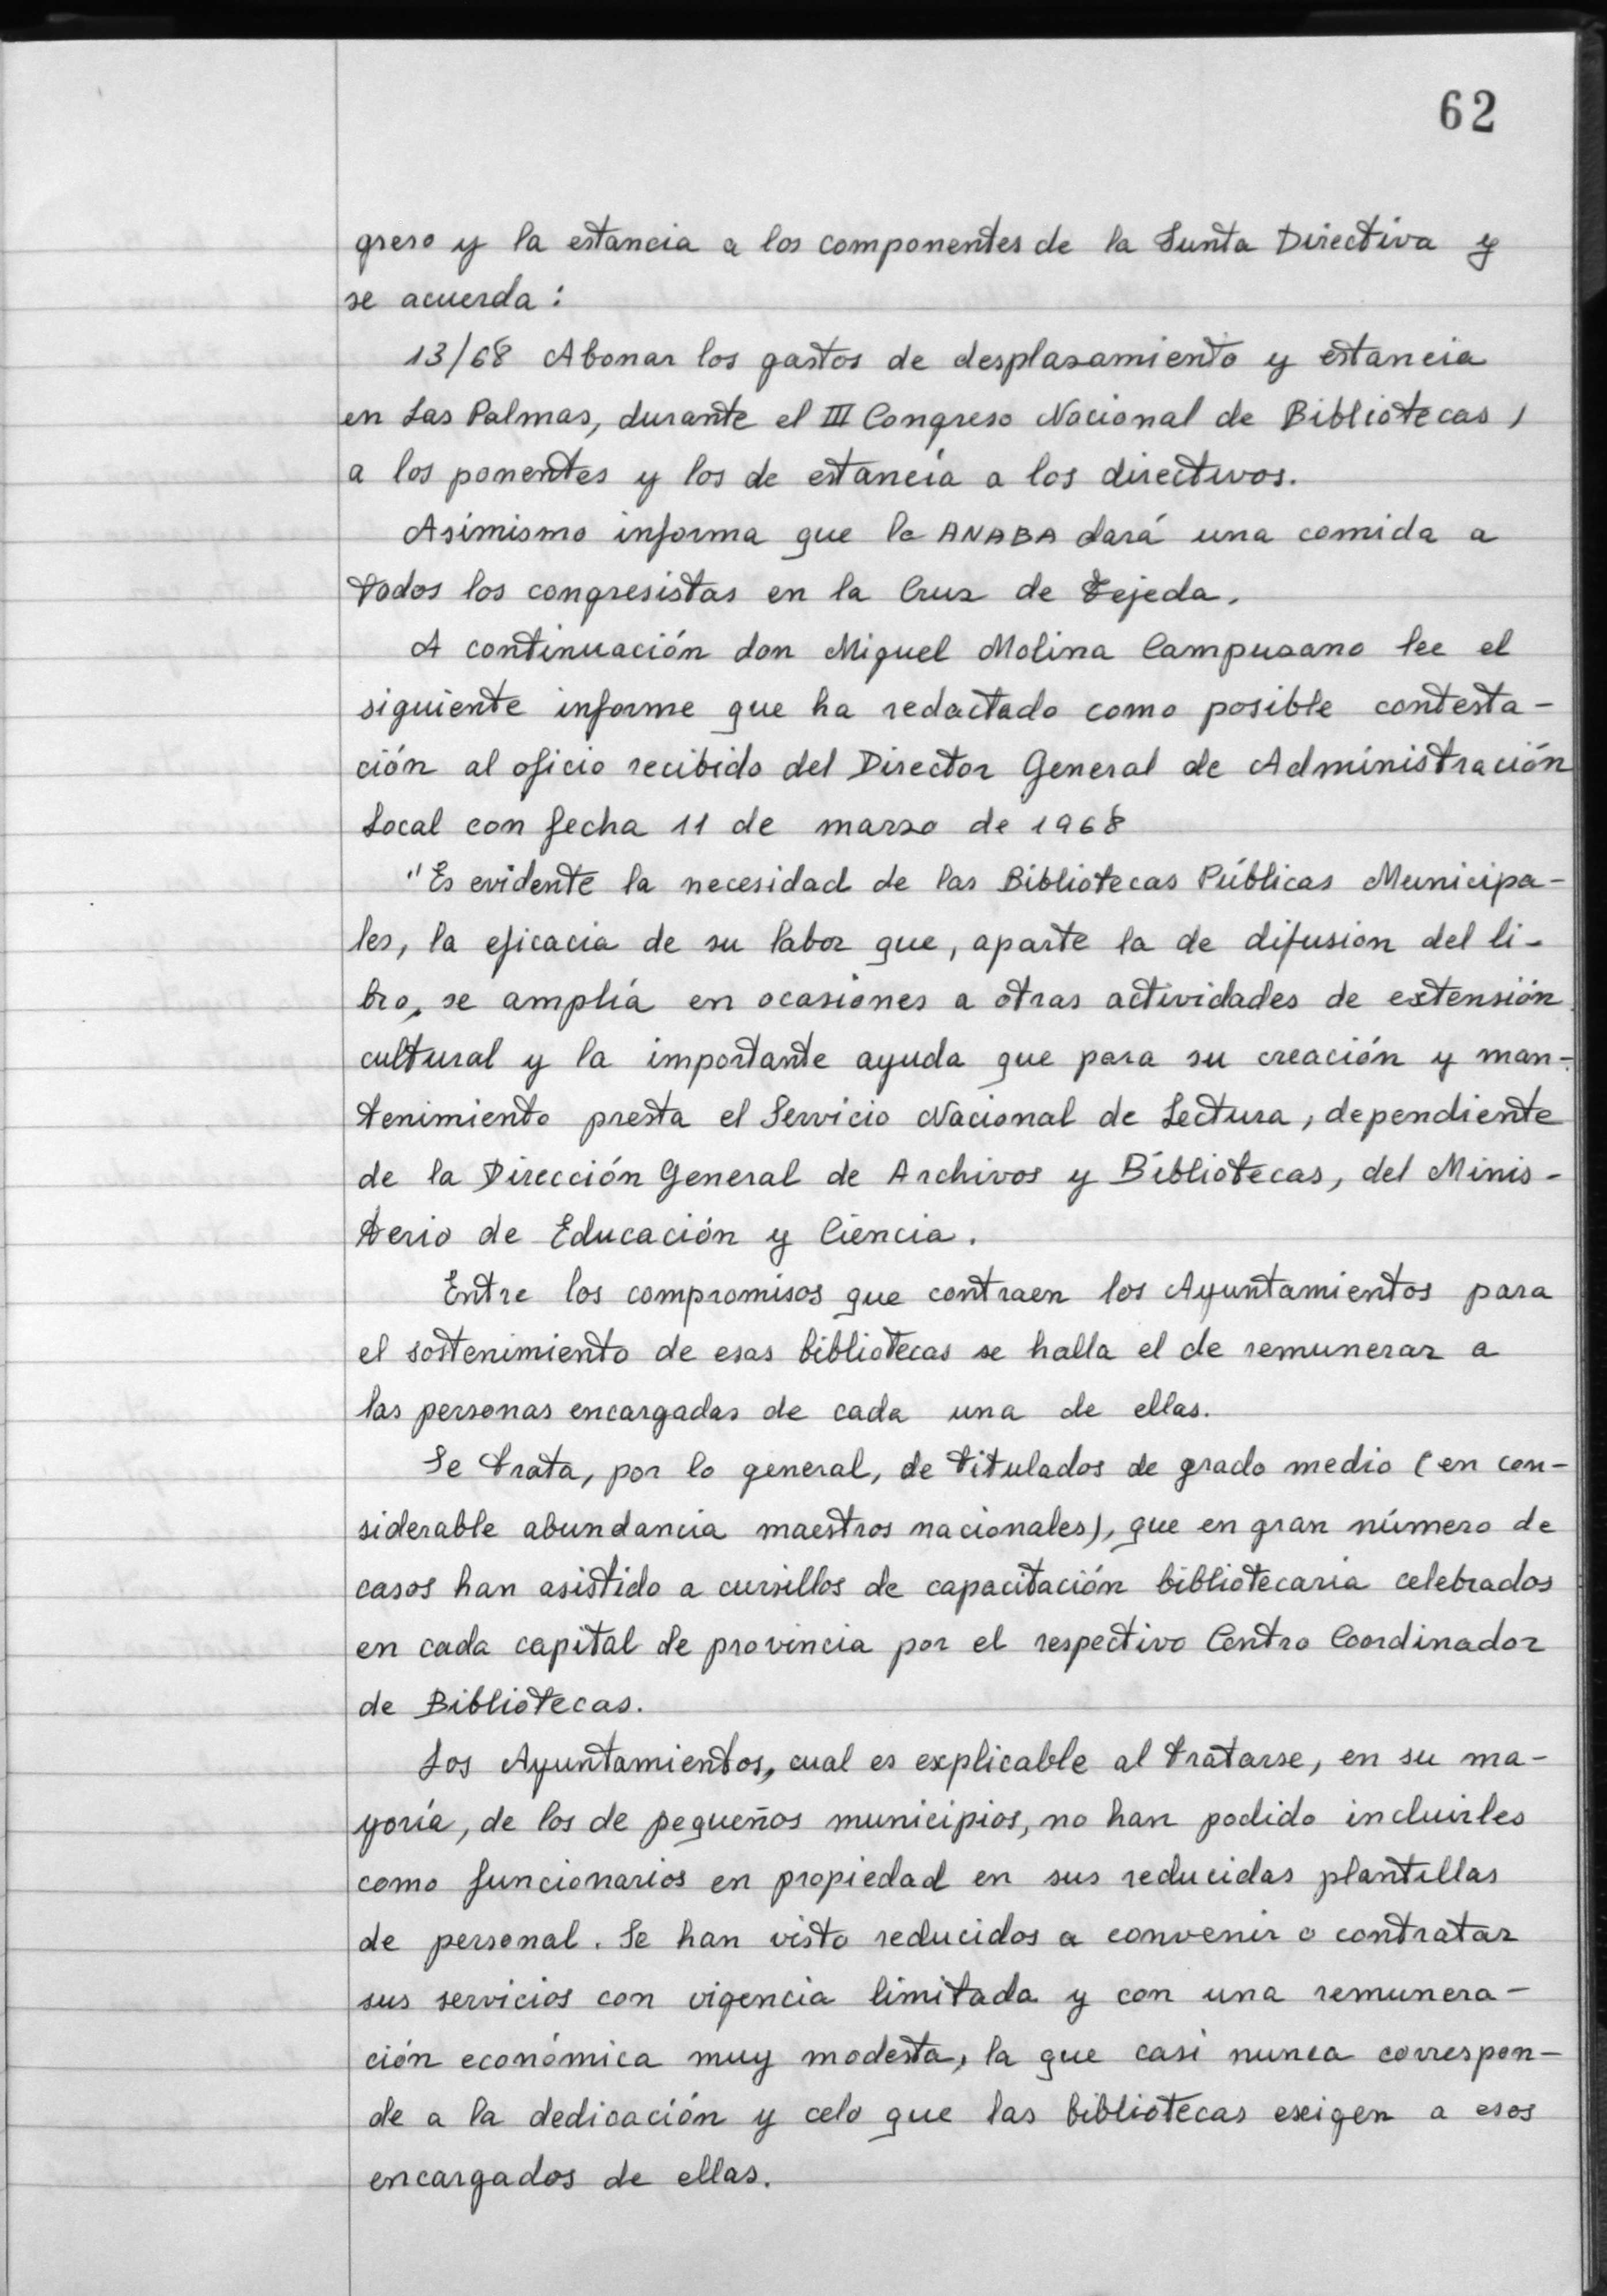 62
greso y la estancia a los componentes de la Junta Directiva y
se acuerda:
13/68 Abonar los gastos de desplazamiento y estancia
en Las Palmas, durante el III Congreso Nacional de Bibliotecas,
a los ponentes y los de estancia a los directivos.
Asimismo informa que la ANABA dará una comida a
todos los congresistas en la Cruz de Tejeda.
A continuación don Miguel Molina Campuzano lee el
siguiente informe que ha redactado como posible contesta-
ción al oficio recibido del Director General de Administración
Local con fecha 11 de marzo de 1968
"Es evidente la necesidad de las Bibliotecas Públicas Municipa-
les, la eficacia de su labor que, aparte la de difusión del li-
bro, se amplía en ocasiones a otras actividades de extensión
cultural y la importante ayuda que para su creación y man-
tenimiento presta el Servicio Nacional de Lectura, dependiente
de la Dirección General de Archivos y Bibliotecas, del Minis-
terio de Educación y Ciencia.
Entre los compromisos que contraen los Ayuntamientos para
el sostenimiento de esas bibliotecas se halla el de remunerar a
las personas encargadas de cada una de ellas.
Se trata, por lo general, de titulados de grado medio (en con-
siderable abundancia maestros nacionales), que en gran número de
casos han asistido a cursillos de capacitación bibliotecaria celebrados
en cada capital de provincia por el respectivo Centro Coordinador
de Bibliotecas.
Los Ayuntamientos, cual es explicable al tratarse, en su ma-
yoría, de los de pequeños municipios, no han podido incluirles
como funcionarios en propiedad en sus reducidas plantillas
de personal. Se han visto reducidos a convenir o contratar
sus servicios con vigencia limitada y con una remunera-
ción económica muy modesta, la que casi nunca correspon-
de a la dedicación y celo que las bibliotecas exigen a esos
encargados de ellas.